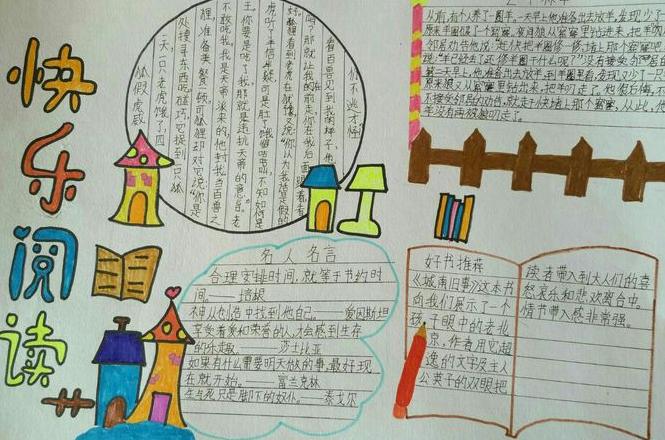 快乐阅读
狐假虎威
一天，一只老虎饿了，四
处搜寻东西吃。碰巧它捉到一只狐
狸，准备美餐一顿。可狐狸却对它说：“你是
不敢吃我。我是天帝派来的，他封我当百兽之
王，你要是吃了我，那就是违抗天帝的意旨。老
虎听了半信半疑，可是肚子饿得咕咕叫，不知如何是
好。狐狸看到老虎在犹豫，又说：“你以为我
吗？那就让我在前走，你在我后面跟着，看
看百兽见到我的样子，他
们不逃才怪
从前，有个人养了一圈羊。一天早上他准备出去放羊，发现少了
原来羊圈破了个窟窿。夜间狼从窟窿里钻进来，把羊
邻居劝告他说：“赶快把羊圈修一修，堵上那个窟窿吧
说：“羊已经丢了，还修羊圈干什么呢？”没有接受
第二天早上，他准备出去放羊，到羊圈里看，发现又少了一只
原来狼又从窟窿里钻进来，把羊叼走了。他很后悔，不
不接受邻居的劝告，就赶快堵上那个窟窿，从此，他
羊没有再被狼叼走了。
名人名言
合理安排时间，就等于节约时
间。——培根
不神从创造中找到他自己。——爱因斯坦
享受着爱和荣誉的人，才会感到生存
的乐趣。——莎士比亚
如果有什么需要明天做的事，最好现
在就开始。——富兰克林
生与死只是脚下的奴仆。——泰戈尔
好书推荐
《城南旧事》这本书
向我们展示了一个
孩子眼中的老北
京，作者用它超
逸的文字及主人
公英子的双眼把
读者带入到大人们的喜
怒哀乐和悲欢离合中。
情节带入感非常强。